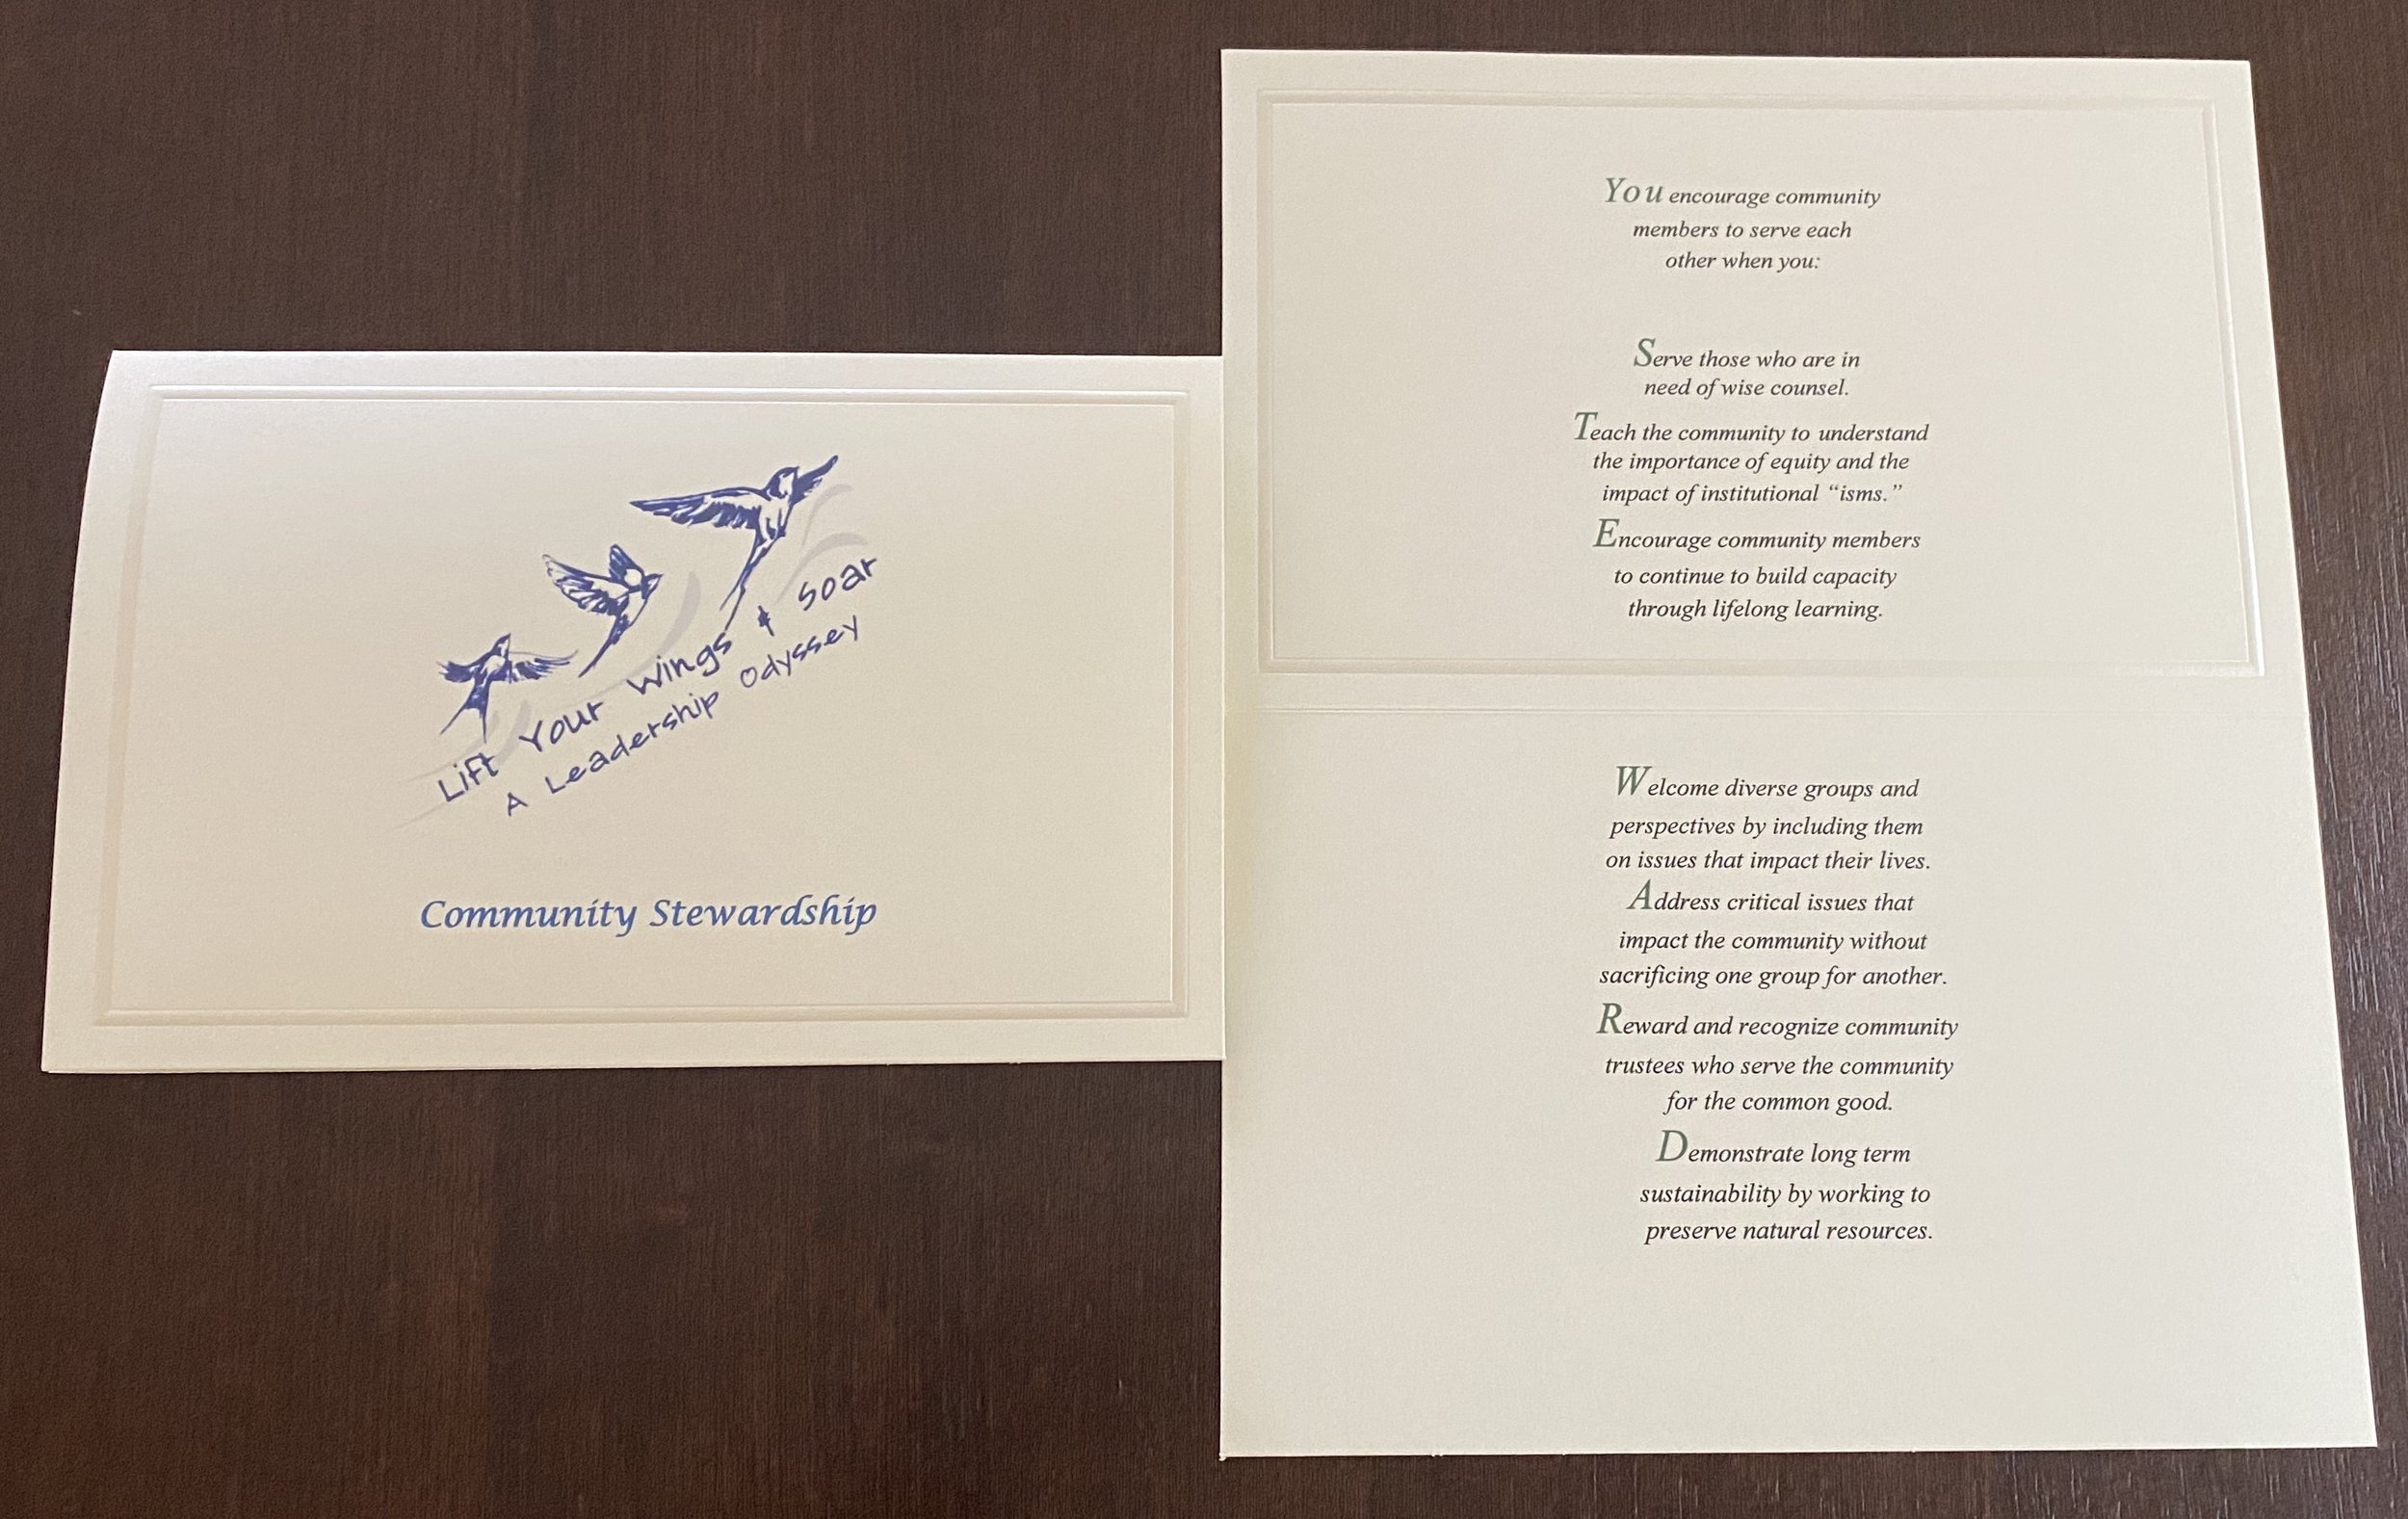 Lift Your Wings & Soar
A Leadership Odyssey
Community Stewardship
You encourage community
members to serve each
other when you:
Serve those who are in
need of wise counsel.
Teach the community to understand
the importance of equity and the
impact of institutional “isms.”
Encourage community members
to continue to build capacity
through lifelong learning.
Welcome diverse groups and
perspectives by including them
on issues that impact their lives.
Address critical issues that
impact the community without
sacrificing one group for another.
Reward and recognize community
trustees who serve the community
for the common good.
Demonstrate long term
sustainability by working to
preserve natural resources.